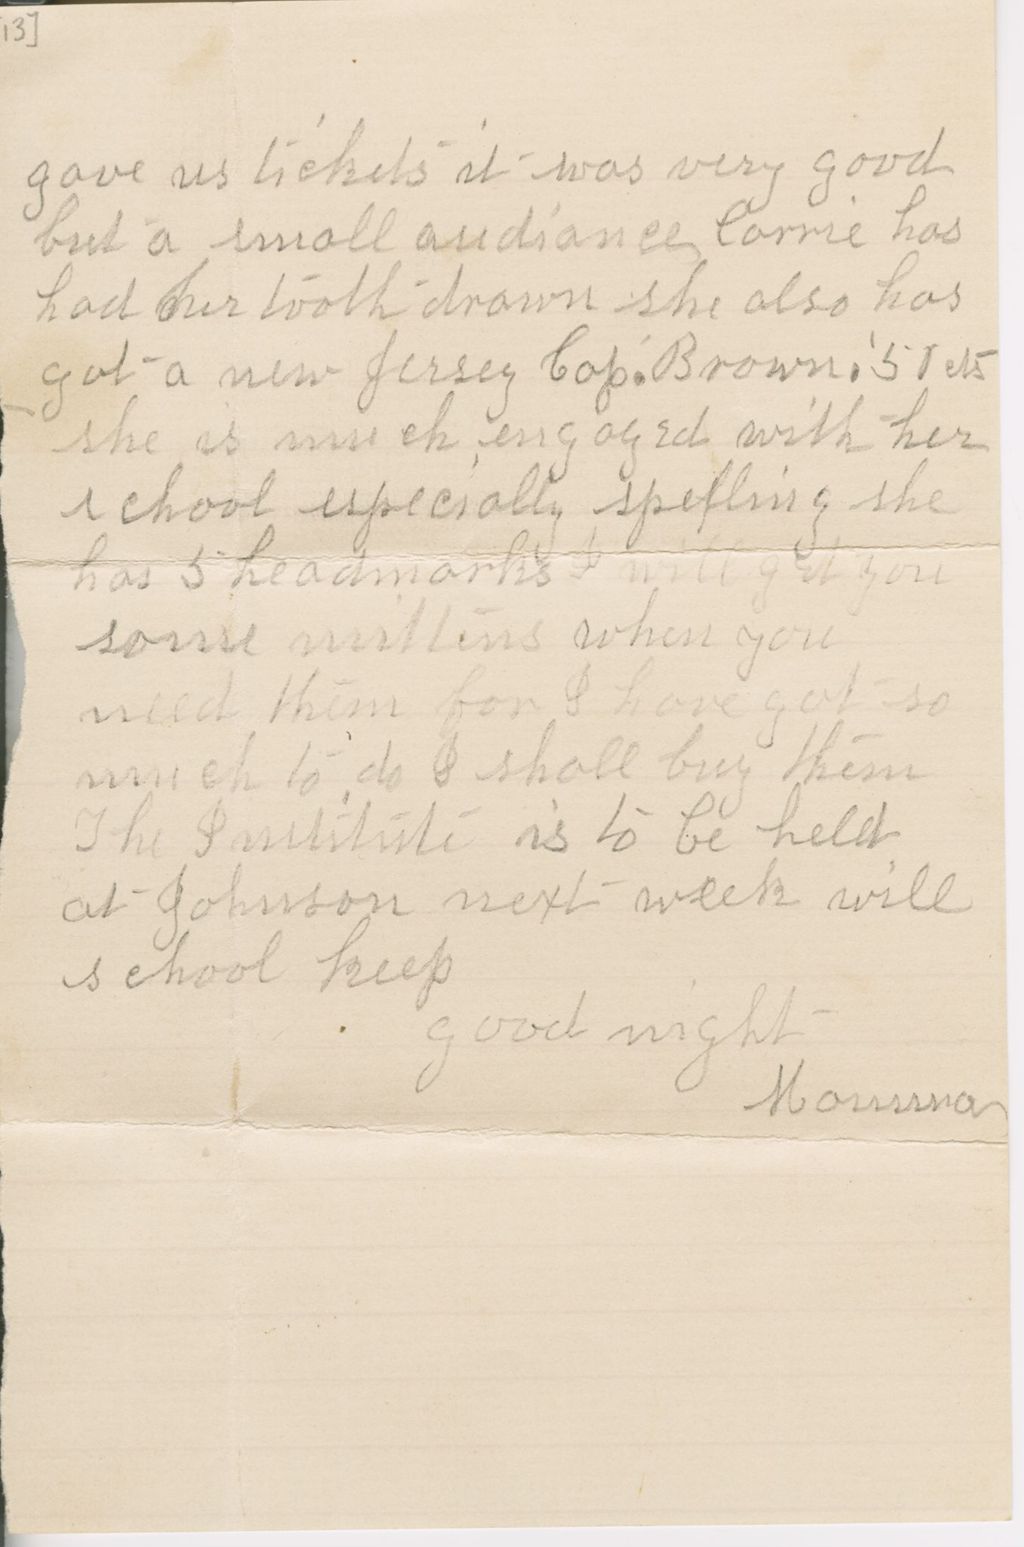 13]
gave us tickets it was very good
but a small audiance Carrie has
had her tooth drawn she also has
got a new Jersey Cap. Brown. 51 cts
she is much engaged with her
school especially spelling she
has 5 headmarks I will get you
some mittens when you
need them for I have got so
much to do I shall buy them
The Institute is to be held
at Johnson next week will
school keep
good night
Mamma